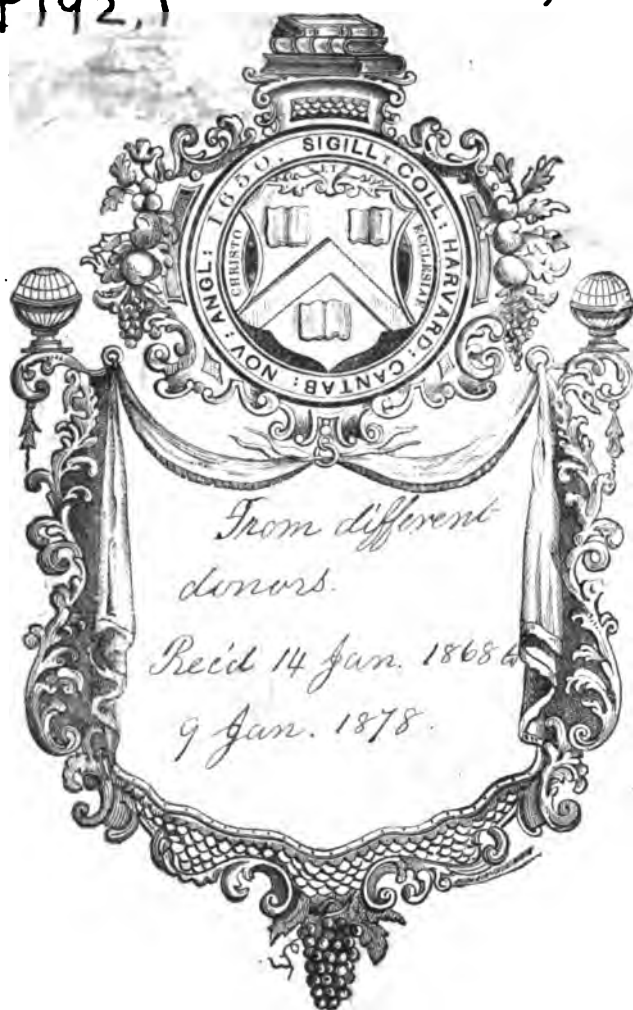 P192.1
SIGILL: COLL: HARVARD: CANTAB: NOV: ANGL: 1650.
CHRISTO
ECCLESIAE
From different
donors.
Rec'd 14 Jan. 1868 &
9 Jan. 1878.